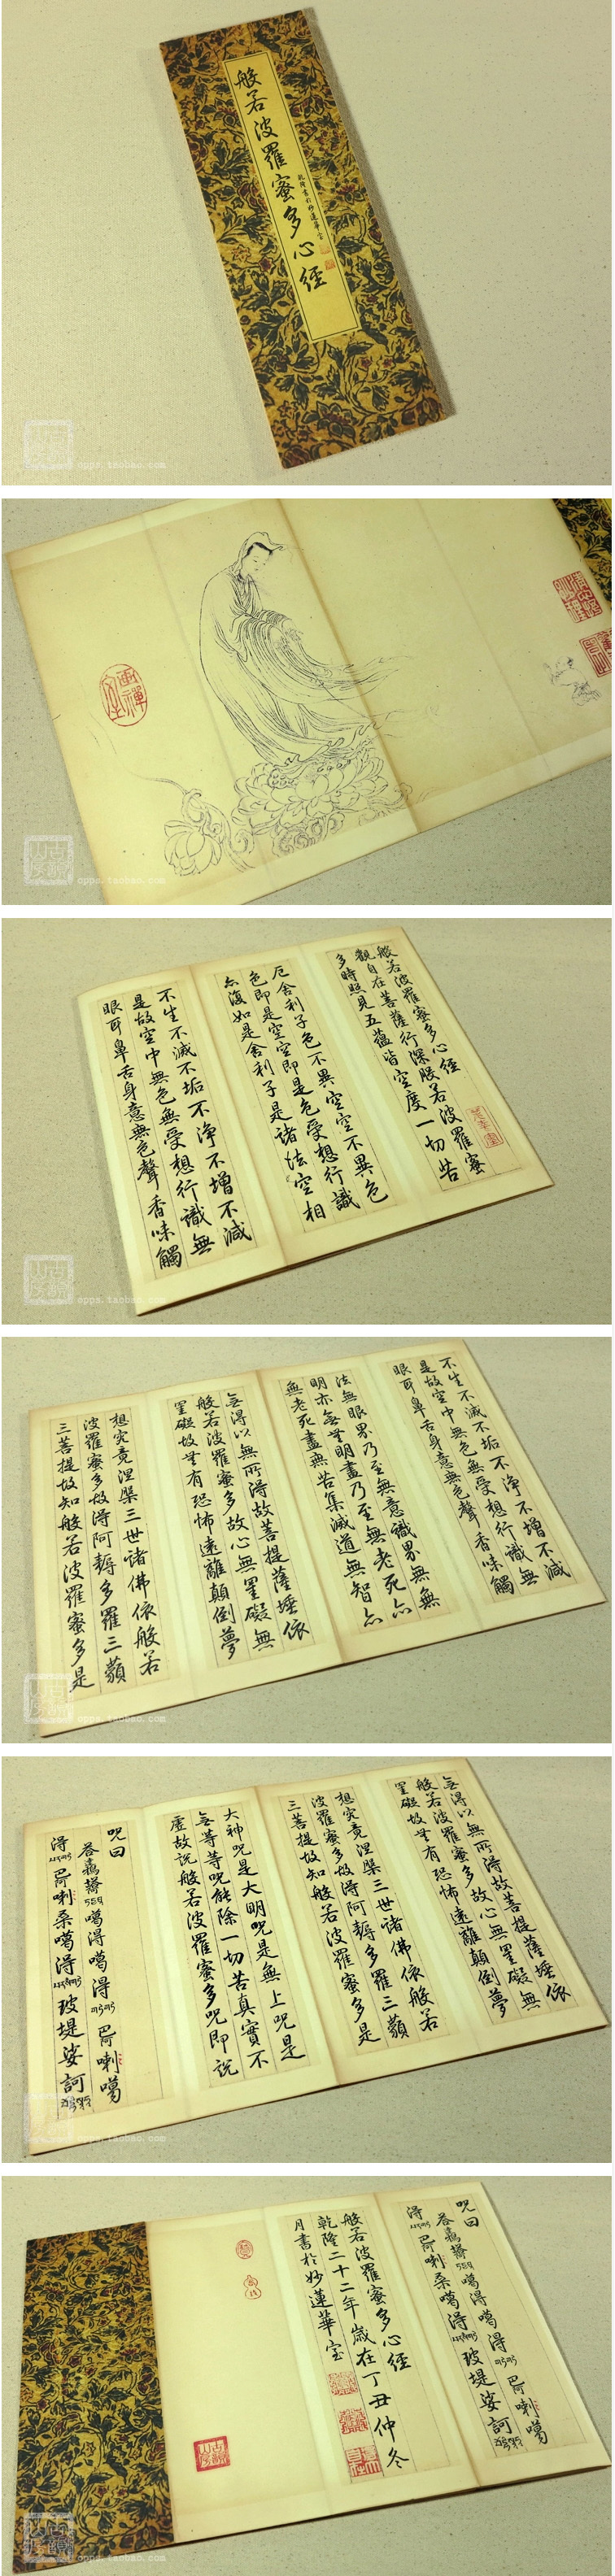 般若波羅蜜多心經
乾隆書於妙蓮華室
opps.taobao.com
畫禪室
opps.taobao.com
般若波羅蜜多心經
觀自在菩薩行深般若波羅蜜
多時照見五蘊皆空度一切苦
厄舍利子色不異空空不異色
色即是空空即是色受想行識
亦復如是舍利子是諸法空相
不生不滅不垢不淨不增不減
是故空中無色無受想行識無
眼耳鼻舌身意無色聲香味觸
opps.taobao.com
不生不滅不垢不淨不增不減
是故空中無色無受想行識無
眼耳鼻舌身意無色聲香味觸
法無眼界乃至無意識界無無
明亦無無明盡乃至無老死亦
無老死盡無苦集滅道無智亦
無得以無所得故菩提薩埵依
般若波羅蜜多故心無罣礙無
罣礙故無有恐怖遠離顛倒夢
想究竟涅槃三世諸佛依般若
波羅蜜多故得阿耨多羅三藐
三菩提故知般若波羅蜜多是
opps.taobao.com
無得以無所得故菩提薩埵依
般若波羅蜜多故心無罣礙無
罣礙故無有恐怖遠離顛倒夢
想究竟涅槃三世諸佛依般若
波羅蜜多故得阿耨多羅三藐
三菩提故知般若波羅蜜多是
大神咒是大明咒是無上咒是
無等等咒能除一切苦真實不
虛故說般若波羅蜜多咒即說
咒曰
噶得噶得 巴阿喇噶
得 巴阿喇桑噶得 玻堤娑訶
opps.taobao.com
咒曰
噶得噶得 巴阿喇噶
得 巴阿喇桑噶得 玻堤娑訶
般若波羅蜜多心經
乾隆二十二年歲在丁丑仲冬
月書於妙蓮華室
opps.taobao.com